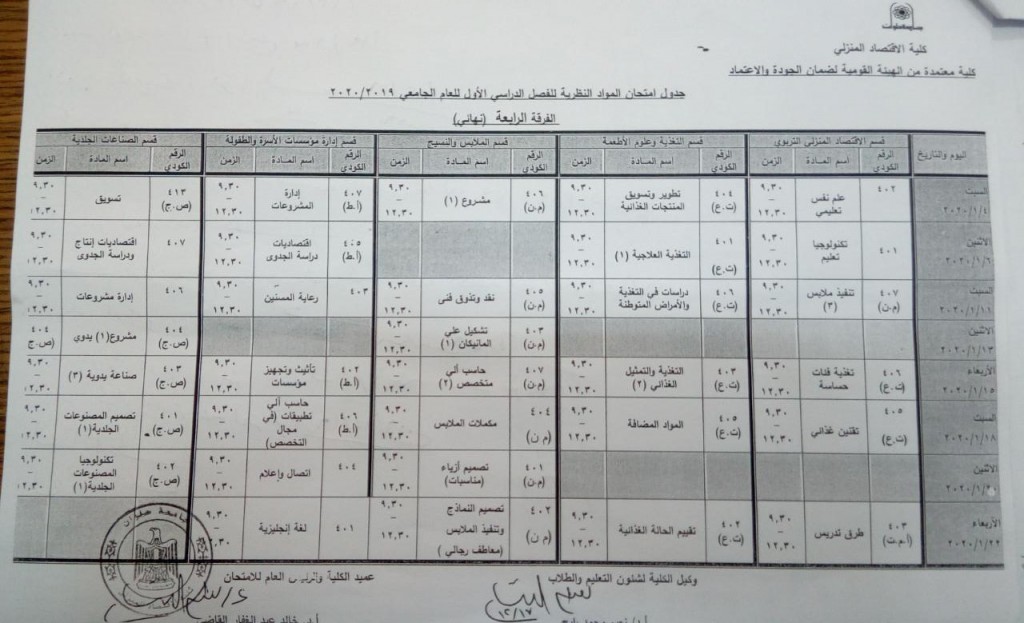 كلية الاقتصاد المنزلي
كلية معتمدة من الهيئة القومية لضمان الجودة والاعتماد
جدول امتحان المواد النظرية للفصل الدراسي الأول للعام الجامعي ٢٠٢٠/٢٠١٩
الفرقة الرابعة (نهائي)
اليوم والتاريخ قسم الاقتصاد المنزلى التربوي قسم التغذية وعلوم الأطعمة قسم الملابس والنسيج قسم إدارة مؤسسات الأسرة والطفولة قسم الصناعات الجلدية
الرقم الكودي اسم المادة الزمن الرقم الكودي اسم المادة الزمن الرقم الكودي اسم المادة الزمن الرقم الكودي اسم المادة الزمن الرقم الكودي اسم المادة الزمن
السبت ٢٠٢٠/١/٤ ٤٠٢ علم نفس تعليمي ٩,٣٠ – ١٢,٣٠ ٤٠٤ (ت.ع) تطوير وتسويق المنتجات الغذائية ٩,٣٠ – ١٢,٣٠ ٤٠٦ (م.ن) مشروع (١) ٩,٣٠ – ١٢,٣٠ ٤٠٧ (أ.ط) إدارة المشروعات ٩,٣٠ – ١٢,٣٠ ٤١٣ (ص.ج) تسويق ٩,٣٠ – ١٢,٣٠
الاثنين ٢٠٢٠/١/٦ ٤٠١ تكنولوجيا تعليم ٩,٣٠ – ١٢,٣٠ ٤٠١ (ت.ع) التغذية العلاجية (١) ٩,٣٠ – ١٢,٣٠ ٤٠٥ (أ.ط) اقتصاديات دراسة الجدوى ٩,٣٠ – ١٢,٣٠ ٤٠٧ اقتصاديات إنتاج ودراسة الجدوى ٩,٣٠ – ١٢,٣٠
السبت ٢٠٢٠/١/١١ ٤٠٧ (م.ن) تنفيذ ملابس (٣) ٩,٣٠ – ١٢,٣٠ ٤٠٦ (ت.ع) دراسات في التغذية والأمراض المتوطنة ٩,٣٠ – ١٢,٣٠ ٤٠٥ (م.ن) نقد وتذوق فنى ٩,٣٠ – ١٢,٣٠ ٤٠٣ رعاية المسنين ٩,٣٠ – ١٢,٣٠ ٤٠٦ إدارة مشروعات ٩,٣٠ – ١٢,٣٠
الاثنين ٢٠٢٠/١/١٣ ٤٠٣ (م.ن) تشكيل علي المانيكان (١) ٩,٣٠ – ١٢,٣٠ ٤٠٤ (ص.ج) مشروع(١) يدوى ٤٠٤ (ص.ج)
الأربعاء ٢٠٢٠/١/١٥ ٤٠٦ (ت.ع) تغذية فئات حساسة ٩,٣٠ – ١٢,٣٠ ٤٠٣ (ت.ع) التغذية والتمثيل الغذائي (٢) ٩,٣٠ – ١٢,٣٠ ٤٠٧ (م.ن) حاسب ألي متخصص (٢) ٩,٣٠ – ١٢,٣٠ ٤٠٢ (أ.ط) تأثيث وتجهيز مؤسسات ٩,٣٠ – ١٢,٣٠ ٤٠٣ (ص.ج) صناعة يدوية (٣) ٩,٣٠ – ١٢,٣٠
السبت ٢٠٢٠/١/١٨ ٤٠٥ (ت.ع) تقنين غذائي ٩,٣٠ – ١٢,٣٠ ٤٠٥ (ت.ع) المواد المضافة ٩,٣٠ – ١٢,٣٠ ٤٠٤ (م ن) مكملات الملابس ٩,٣٠ – ١٢,٣٠ ٤٠٦ (أ.ط) حاسب ألي تطبيقات (في مجال التخصص) ٩,٣٠ – ١٢,٣٠ ٤٠١ (ص.ج) تصميم المصنوعات الجلدية(١) ٩,٣٠ – ١٢,٣٠
الاثنين ٢٠٢٠/١/٢٠ ٤٠١ (م.ن) تصميم أزياء (مناسبات) ٩,٣٠ – ١٢,٣٠ ٤٠٤ اتصال وإعلام ٩,٣٠ – ١٢,٣٠ ٤٠٢ (ص.ج) تكنولوجيا المصنوعات الجلدية(١) ٩,٣٠ – ١٢,٣٠
الأربعاء ٢٠٢٠/١/٢٢ ٤٠٣ (أ.م.ت) طرق تدريس ٩,٣٠ – ١٢,٣٠ ٤٠٢ (ت.ع) تقييم الحالة الغذائية ٩,٣٠ – ١٢,٣٠ ٤٠٢ (م ن) تصميم النماذج وتنفيذ الملابس (معاطف رجالي) ٩,٣٠ – ١٢,٣٠ ٤٠١ لغة إنجليزية ٩,٣٠
وكيل الكلية لشئون التعليم والطلاب عميد الكلية والرئيس العام للامتحان
١٢/١٧
أ.د. خالد عبد الغفار القاضي